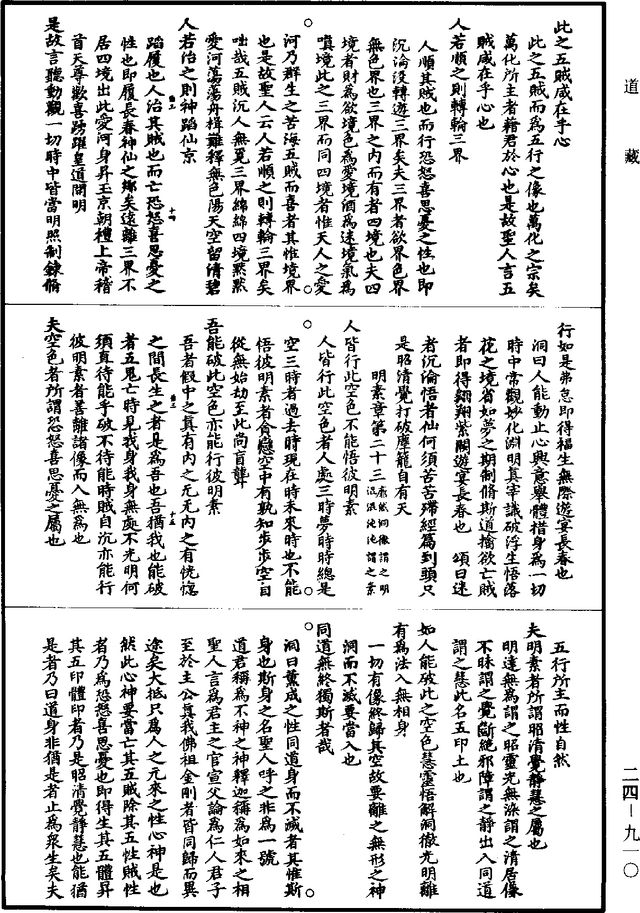 道藏
此之五賊咸在乎心
此之五賊而為五行之像也萬化之宗矣
萬化所主者藉君於心也是故聖人言五
賊咸在乎心也
人若順之則轉輪三界
人順其賊也而行恐怒喜思憂之性也即
沉淪沒轉遊三界矣夫三界者欲界色界
無色界也三界之內而有者四境也夫四
境者財為欲境色為愛境酒為迷境氣為
嗔境此之三界而同四境者惟天人之愛
河乃群生之苦海五賊而喜者其惟境界
也是故聖人云人若順之則轉輪三界矣
咄哉五賊沉人無覓三界綿綿四境默默
愛河蕩蕩舟楫難釋無色陽天空留清碧
人若治之則神蹈仙京
蹈履也人治其賊也而亡恐怒喜思憂之
性也即履長春神仙之鄉矣遠離三界不
居四境出此愛河身昇玉京朝禮上帝稽
首天尊歡喜踴躍皇道開明
是故言聽動觀一切時中皆當明照制鍊脩
行如是弗怠即得福生無際遊宴長春也
洞曰人能動止心興意舉體措身為一切
時中常觀妙化淵明真宰識破浮生悟落
花之境省如夢之期制脩斯道擒欲亡賊
者即得翱翔紫闕遊宴長春也 頌曰迷
者沉淪悟者仙何須苦苦殢經篇到頭只
是昭清覺打破塵籠自有天
明素章第二十三
人皆行此空色不能悟彼明素
人皆行此空色者人處三時夢時時總是
空三時者過去時現在時未來時也不能
悟彼明素者貪戀空中有孰知步步空自
從無始劫至此尚盲聾
吾能破此空色亦能行彼明素
吾者假中之真有內之元无內之有恍惚
之間長生之者是為吾也吾猶我也能破
者五見亡時見我身我身無處不光明何
須真待能乎破不待能時賊自沉亦能行
彼明素者喜離諸像而入無為也
夫空色者所謂恐怒喜思憂之屬也
五行所主而性自然
夫明素者所謂昭清覺靜慧之屬也
明達無為謂之昭靈光無染謂之清居像
不昧謂之覺斷絕邪障謂之靜出入同道
謂之慧此名五印土也
如人能破此之空色慧靈悟解洞徹光明離
有為法入無相身
一切有像終歸其空故要離之無形之神
洞而不滅要當入也
同道無終獨斯者哉
洞曰薰成之性同道身而不滅者其惟斯
身也斯身之名聖人呼之非為一號
道君稱為不神之神釋迦稱為如來之相
聖人言為君主之官宣父論為仁人君子
至於主公真我佛祖金剛者皆同歸而異
途矣大抵只為人之元來之性心神是也
然此心神要當亡其五賊除其五性賊性
者乃為恐怒喜思憂也即得生其五體昇
其五印體印者乃是昭清覺靜慧也能猶
是者乃曰道身非猶是者止為衆生矣夫
二四－九一〇